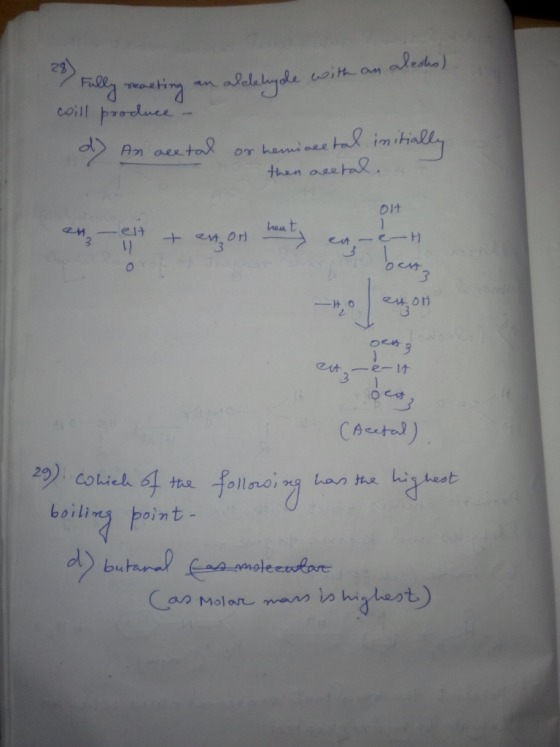 28) Fully reacting an aldehyde with an alcohol
will produce -
d) An acetal or hemiacetal initially
then acetal.
OH
CH3 — CH + CH3OH heat → CH3 — C — H
O
OCH3
—H2O CH3OH
OCH3
CH3 — C — H
OCH3
(Acetal)
29) Which of the following has the highest
boiling point -
d) butanal (as molecular
(as Molar mass is highest)